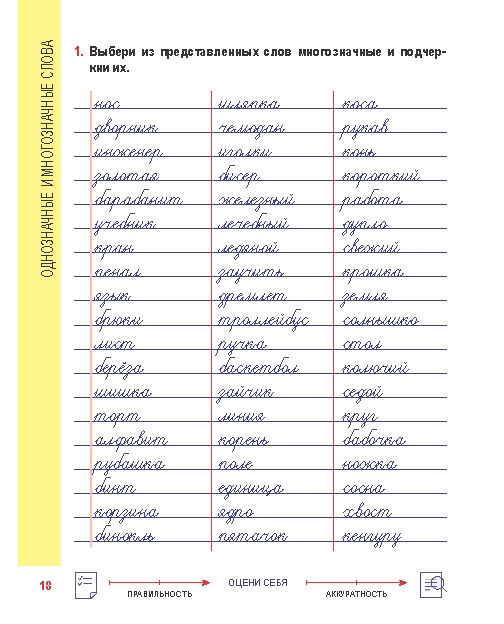 ОДНОЗНАЧНЫЕ И МНОГОЗНАЧНЫЕ СЛОВА
1. Выбери из представленных слов многозначные и подчер-
кни их.
нос шляпка коса
дворник чемодан рукав
инженер иголки конь
золотая бисер короткий
барабанит железный работа
учебник лечебный дупло
кран ледяной свежий
пенал заучить крошка
язык дремлет земля
брюки троллейбус солнышко
лист ручка стол
берёза баскетбол колючий
шишка зайчик седой
торт линия круг
алфавит корень бабочка
рубашка поле ножка
бинт единица сосна
корзина ядро хвост
бинокль пятачок кенгуру
18 ПРАВИЛЬНОСТЬ ОЦЕНИ СЕБЯ АККУРАТНОСТЬ